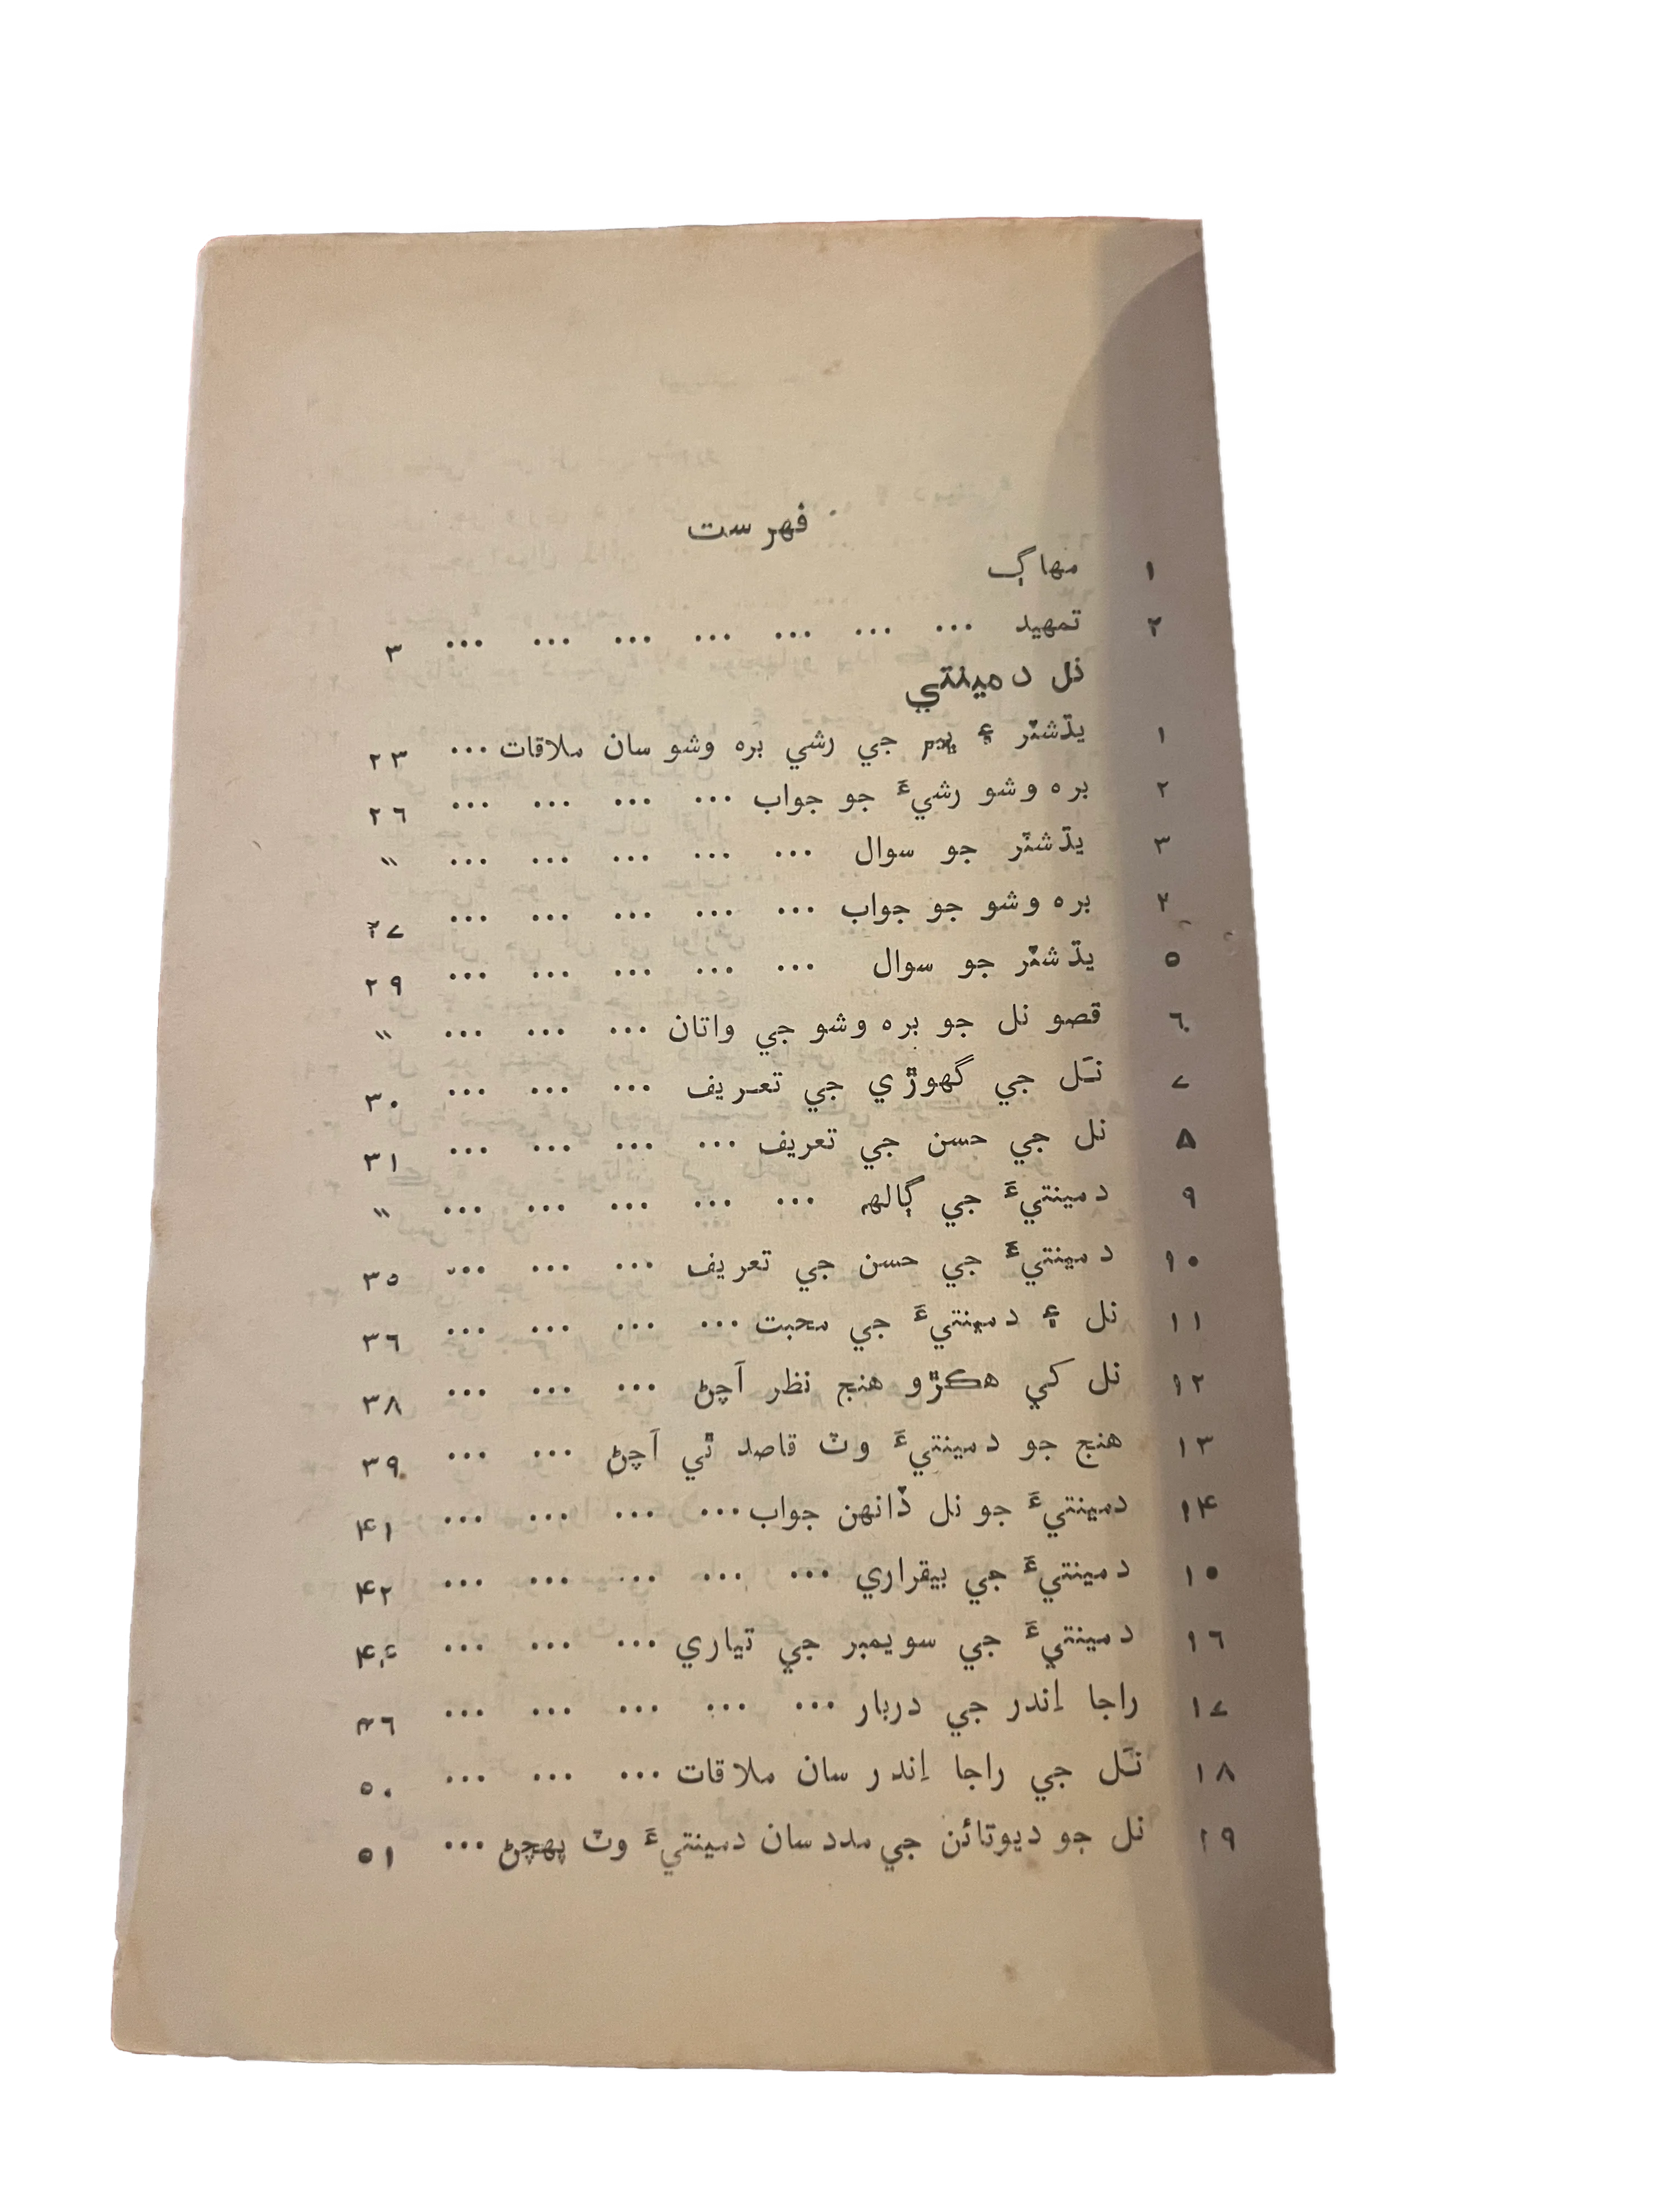 فهرست
١ مهاڳ
٢ تمهيد ... ... ... ... ... ... ... ٣
نل دمينتي
١ يڌشٽر ۽ ڀيم جي رشي بره وشو سان ملاقات ... ٢٣
٢ بره وشو رشيءَ جو جواب ... ... ... ... ٢٦
٣ يڌشٽر جو سوال ... ... ... ... ... "
٤ بره وشو جو جواب ... ... ... ... ... ٢٧
٥ يڌشٽر جو سوال ... ... ... ... ... ٢٩
٦ قصو نل جو بره وشو جي واتان ... ... ... "
٧ نَل جي گهوڙي جي تعريف ... ... ... ٣٠
٨ نل جي حسن جي تعريف ... ... ... ... ٣١
٩ دمينتيءَ جي ڳالهه ... ... ... ... ... "
١٠ دمينتيءَ جي حسن جي تعريف ... ... ... ٣٥
١١ نل ۽ دمينتيءَ جي محبت ... ... ... ... ٣٦
١٢ نل کي هڪڙو هنج نظر آچڻ ... ... ... ٣٨
١٣ هنج جو دمينتيءَ وٽ قاصد ٿي آچڻ ... ... ٣٩
١۴ دمينتيءَ جو نل ڏانهن جواب ... ... ... ... ۴١
١٥ دمينتيءَ جي بيقراري ... ... ... ... ... ۴٢
١٦ دمينتيءَ جي سويمبر جي تياري ... ... ...
١٧ راجا اِندر جي دربار ... ... ... ... ... ۴٦
١٨ نَل جي راجا اِندر سان ملاقات ... ... ... ٥٠
١٩ نل جو ديوتائن جي مدد سان دمينتيءَ وٽ پهچڻ ... ٥١